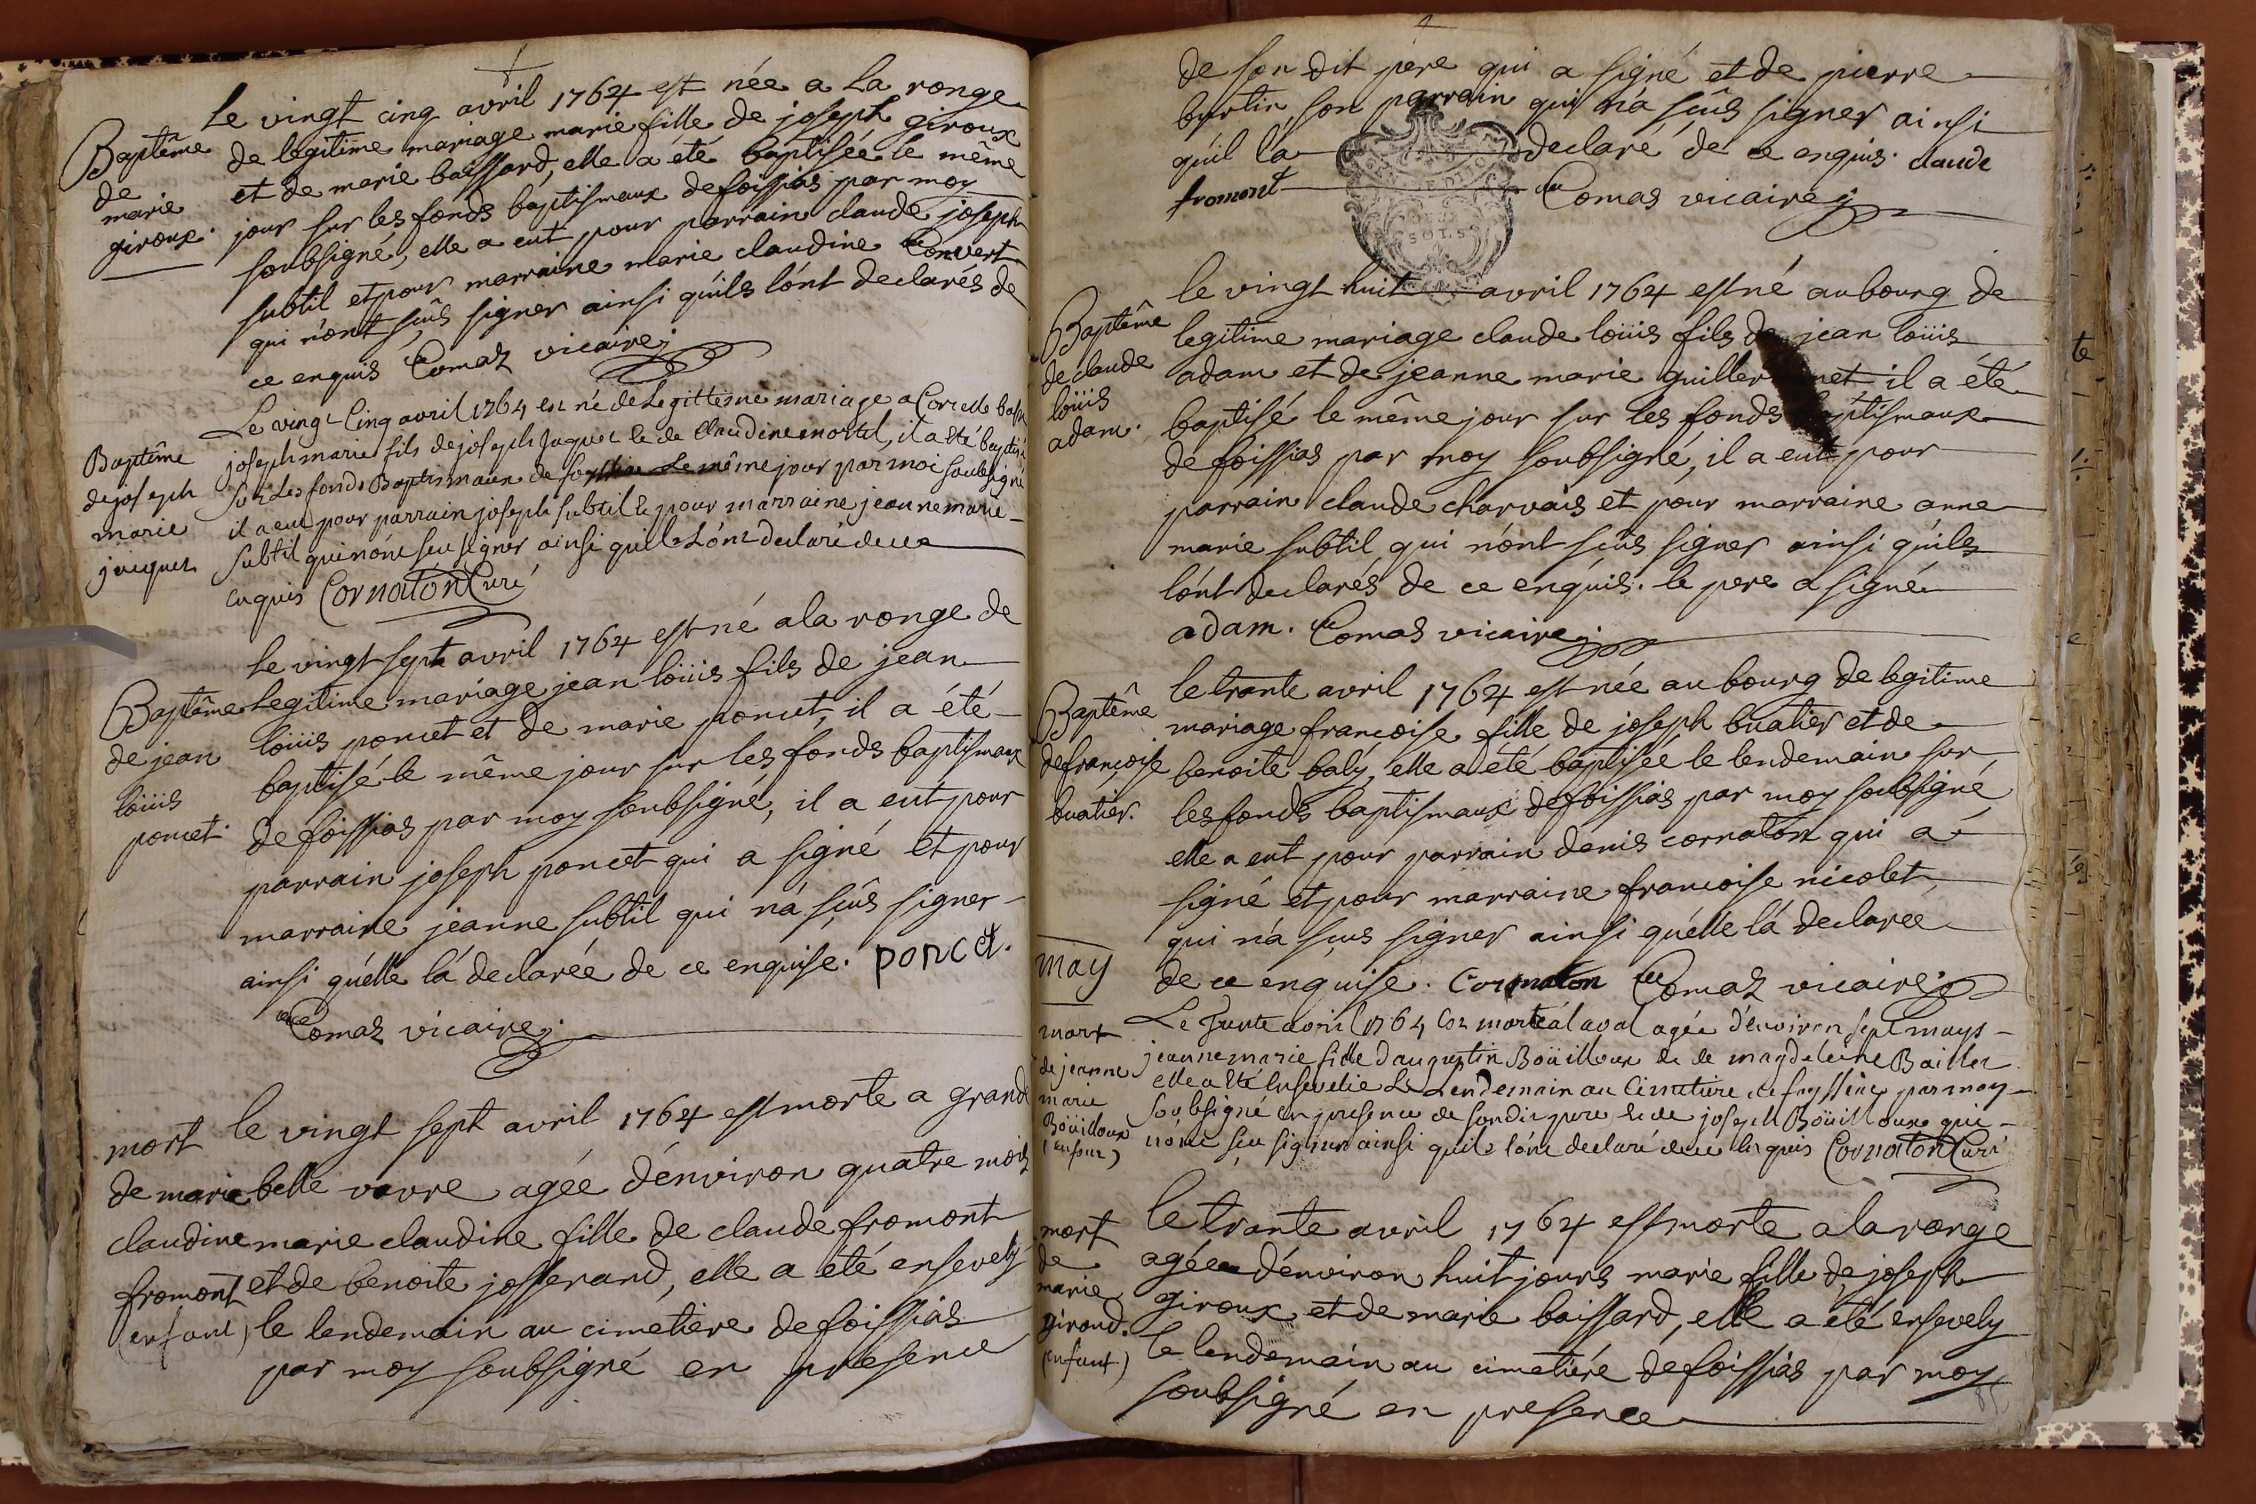 Le vingt cinq avril 1764 est née a La ronge
Baptême de legitime mariage marie fille de joseph giroux
de et de marie baissard, elle a été baptisée le même
marie jour sur les fonds baptismaux de foissias par moy
giroux. soubsigné, elle a eut pour parrain claude joseph
subtil et pour marraine marie claudine Convert
qui n'ont sçûs signer ainsi qu'ils l'ont declarés de
ce enquis Comas vicaire
Le vingt Cinq avril 1764 est né de Legittime mariage a Corcelle
Baptême joseph marie fils de joseph Jaquet & de Claudine mortel, il a été baptisé
de joseph sur Les fonds Baptismaux de Le même jour par moi soubsigné
marie il a eu pour parrain joseph subtil & pour marraine jeanne marie
jacquet subtil qui n'ont seu signer ainsi qu'ils L'ont declaré de ce
enquis Cornaton Curé
Le vingt sept avril 1764 est né a la ronge de
Baptême Legitime mariage jean loüis fils de jean
de jean loüis poncet et de marie poncet, il a été
loüis baptisé le même jour sur les fonds baptismaux
poncet. de foissias par moy soubsigné, il a eut pour
parrain joseph poncet qui a signé et pour
marraine jeanne subtil qui n'a sçûs signer
ainsi qu'elle l'a declarée de ce enquise. poncet.
Comas vicaire
mort le vingt sept avril 1764 est morte a grand
de marie belle vavre agée d'environ quatre mois
claudine marie claudine fille de claude fromont
fromont et de benoite josserand, elle a été ensevely
(enfant) le lendemain au cimetiere de foissias
par moy soubsigné en presence
de son dit père qui a signé et de pierre
burtin son parrain qui n'a sçûs signer ainsi
qu'il l'a declaré de ce enquis. claude
fromont Comas vicaire
le vingt huit avril 1764 est né au bourg de
Baptême legitime mariage claude loüis fils de jean loüis
de claude adam et de jeanne marie guillermet il a été
loüis baptisé le même jour sur les fonds baptismaux
adam. de foissias par moy soubsigné, il a eut pour
parrain claude charvais et pour marraine anne
marie subtil qui n'ont sçus signer ainsi qu'ils
l'ont declarés de ce enquis. le pere a signé
adam. Comas vicaire
le trante avril 1764 est née au bourg de legitime
Baptême mariage françoise fille de joseph buatier et de
de françoise benoite baly, elle a été baptisée le lendemain sur
buatier. les fonds baptismaux de foissias par moy soubsigné
elle a eut pour parrain denis cornaton qui a
signé et pour marraine francoise nicolet,
qui n'a sçus signer ainsi qu'elle l'a declarée
may de ce enquise. Cornaton Comas vicaire
mort Le Trente avril 1764 Est morte a laval agée d'environ sept mays
de jeanne jeanne marie fille d'augustin Boüilloux & de magdeleine Bailler
marie elle a été Ensevelie Le Lendemain au Cimetiere de par moy
Boüilloux soubsigné en presence de son dit pere & de joseph Boüilloux qui
(enfant) n'ont seu signer ainsi qu'ils l'ont declaré de ce enquis Cornaton Curé
mort le trante avril 1764 est morte a la ronge
de agée d'environ huit jours marie fille de joseph
marie giroux et de marie baissard, elle a été ensevely
giroud. le lendemain au cimetiére de foissias par moy
(enfant) soubsigné en presence